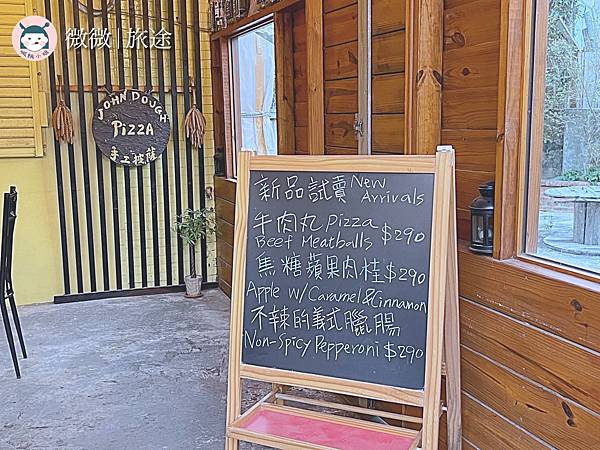 微微|旅途
JOHN DOUGH
PIZZA
手工披薩
新品試賣 New Arrivals
牛肉丸 Pizza
Beef Meatballs $290
焦糖蘋果肉桂 $290
Apple w/Caramel&Cinnamon
不辣的義式臘腸
Non-Spicy Pepperoni $290